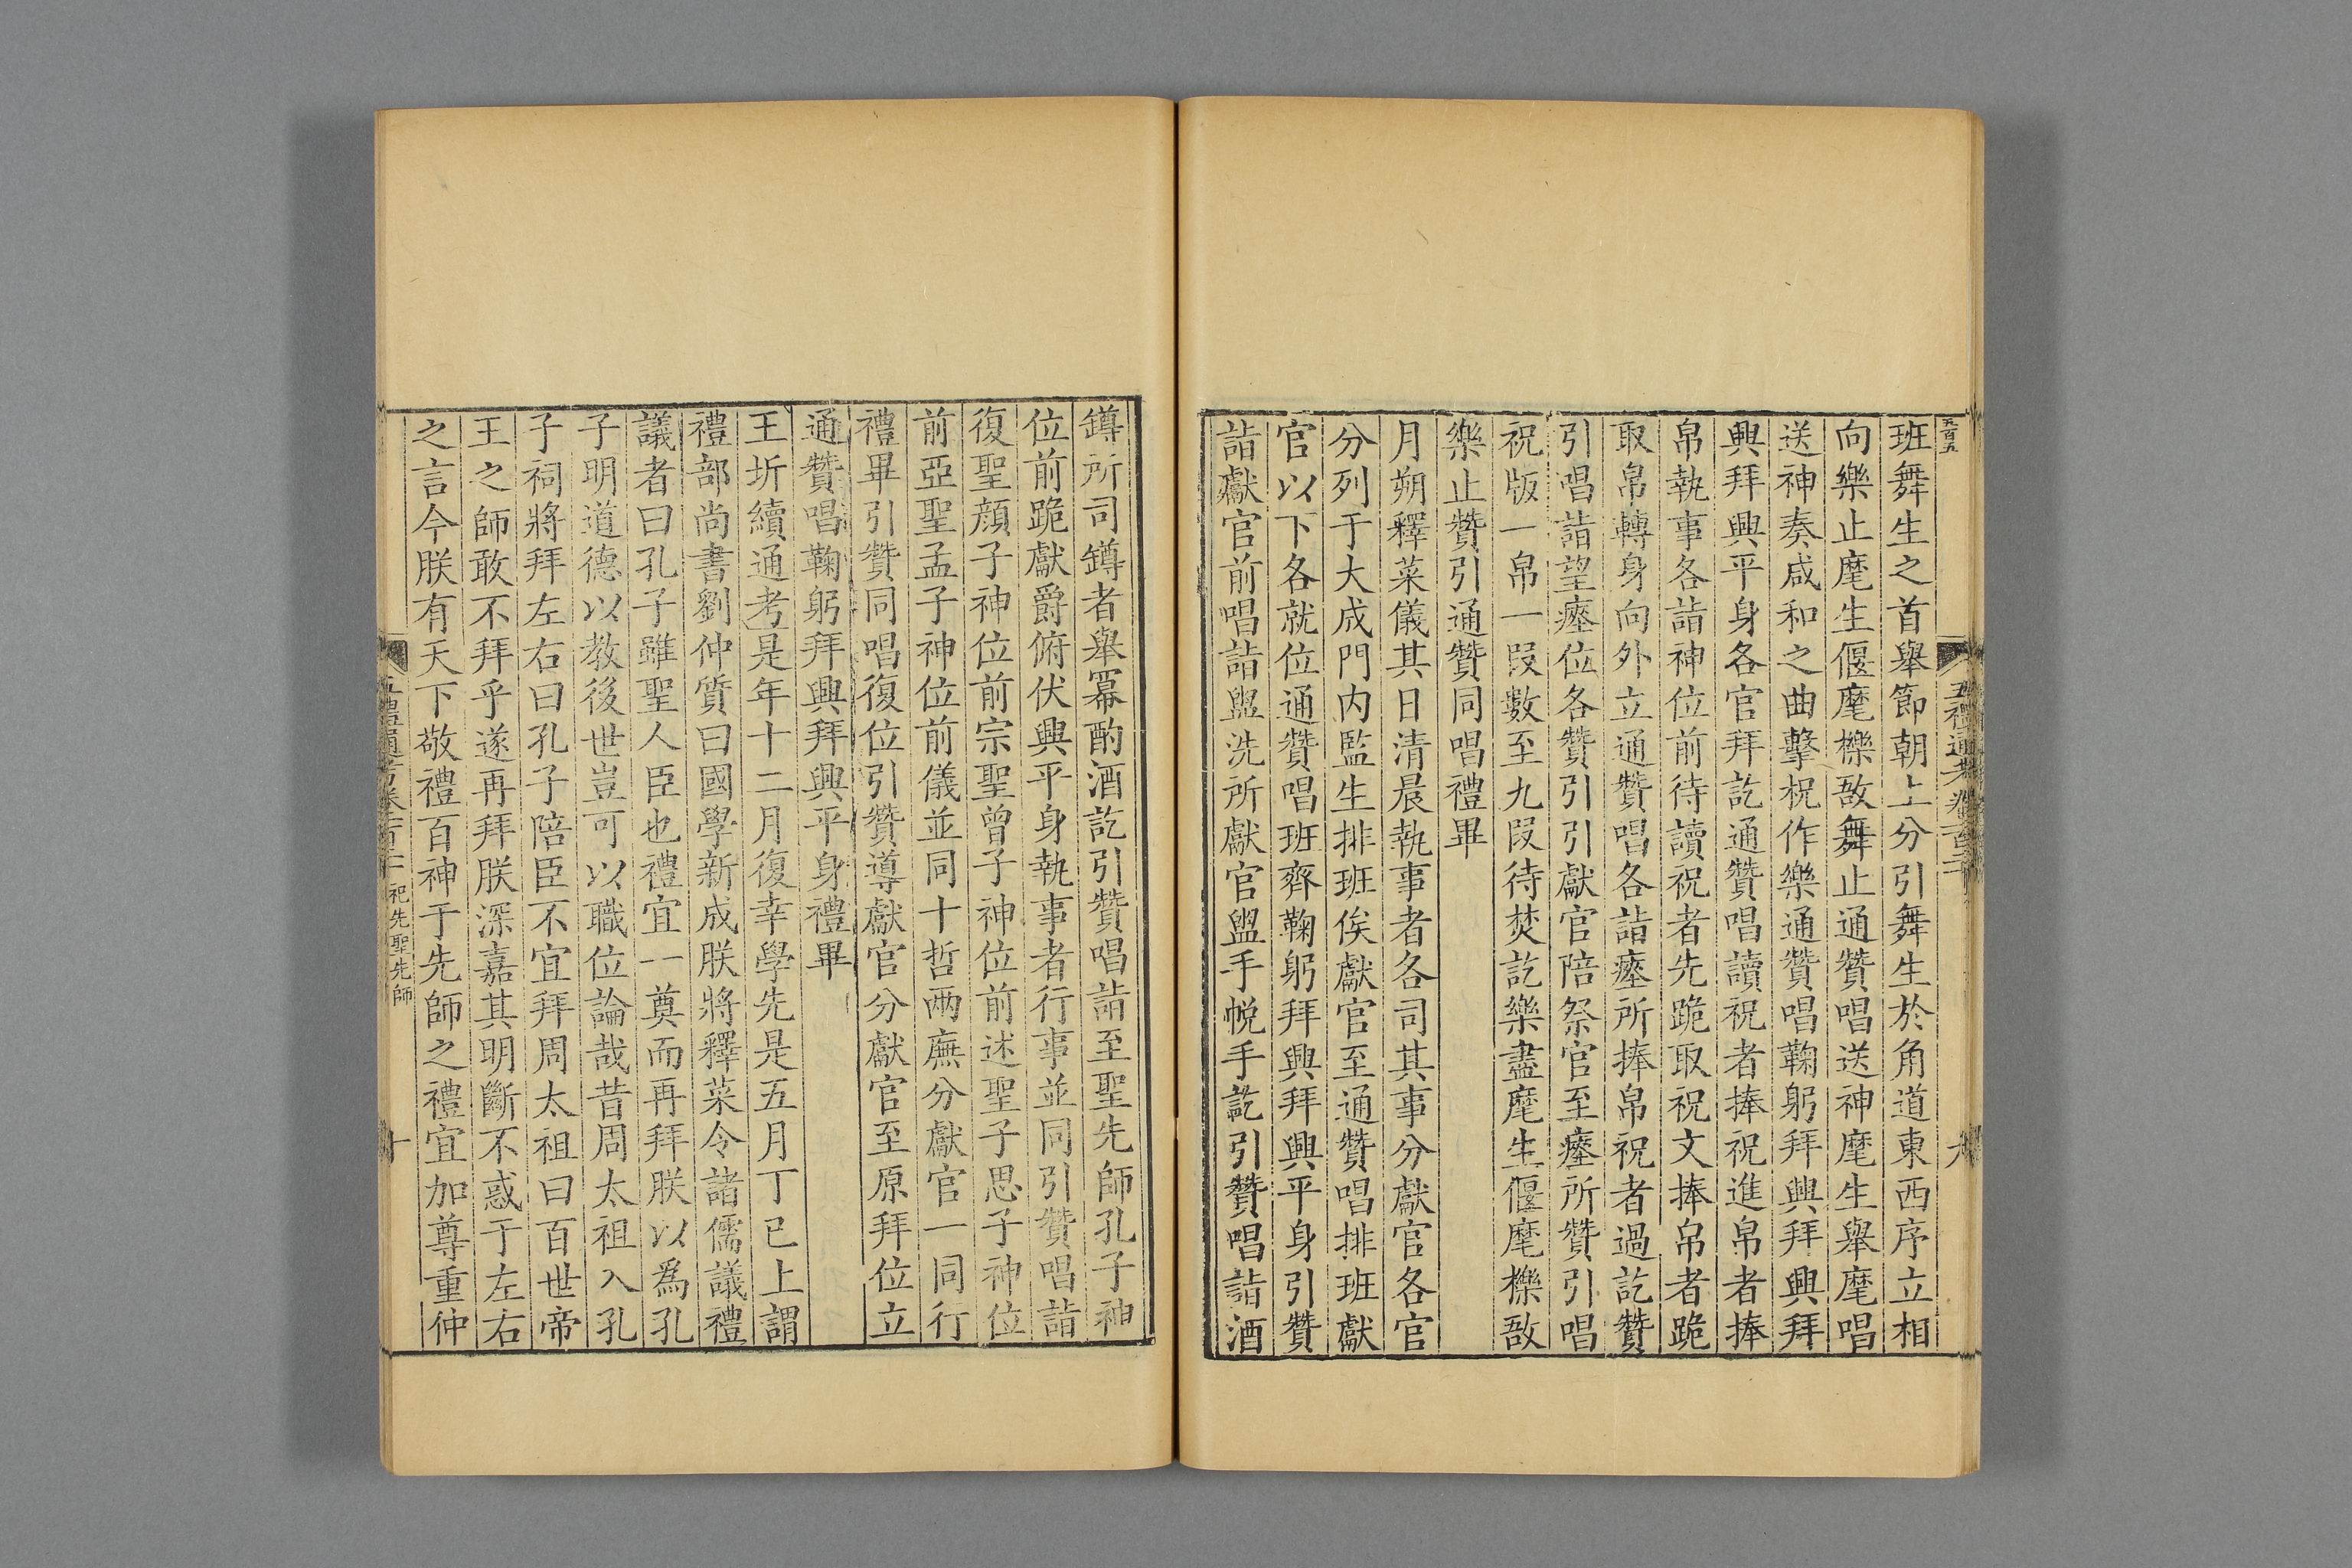 班舞生之首舉節朝上分引舞生於角道東西序立相
向樂止麾生偃麾櫟敔舞止通通贊唱送神麾生舉麾唱
送神奏咸和之曲擊柷作樂通贊唱鞠躬拜興拜興拜
興拜興平身各官拜訖通贊唱讀祝者捧祝進帛者捧
帛執事各詣神位前待讀祝者先跪取祝文捧帛者跪
取帛轉身向外立通贊唱各詣瘞所捧帛祝者過訖贊
引唱詣望瘞位各贊引引獻官陪祭官至瘞所贊引唱
祝版一帛一叚數至九叚待焚訖樂盡麾生偃麾櫟敔
樂止贊引通贊同唱禮畢
月朔釋菜儀其日清晨執事者各司其事分獻官各官
分列于大成門內監生排班俟獻官至通贊唱排班獻
官以下各就位通贊唱班齊鞠躬拜興拜興平身引贊
詣獻官前唱詣盥洗所獻官盥手帨手訖引贊唱詣酒
罇所司罇者舉冪酌酒訖引贊唱詣至聖先師孔子神
位前跪獻爵俯伏興平身執事者行事並同引贊唱詣
復聖顏子神位前宗聖曾子神位前述聖子思子神位
前亞聖孟子神位前儀並同十哲兩廡分獻官一同行
禮畢引贊同唱復位引贊導獻官分獻官至原拜位立
通贊唱鞠躬拜興拜興平身禮畢
王圻續通考是年十二月復幸學先是五月丁巳上謂
禮部尚書劉仲質曰國學新成朕將釋菜令諸儒議禮
議者曰孔子雖聖人臣也禮宜一奠而再拜朕以為孔
子明道德以教後世豈可以職位論哉昔周太祖入孔
子祠將拜左右曰孔子陪臣不宜拜周太祖曰百世帝
王之師敢不拜乎遂再拜朕深嘉其明斷不惑于左右
之言今朕有天下敬禮百神于先師之禮宜加尊重仲
祀先聖先師